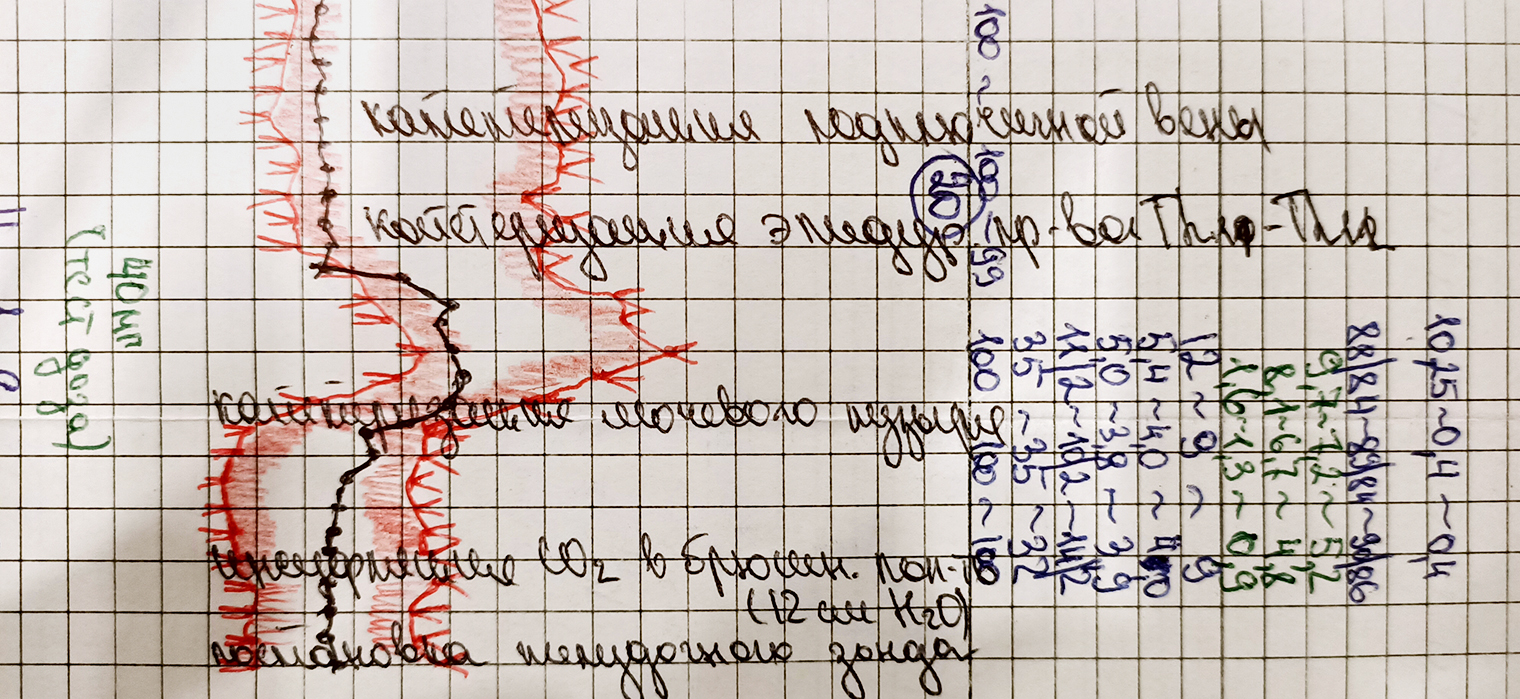 катетеризация подключичной вены
катетеризация эпидур. пр-ва Th10-Th12
катетеризация мочевого пузыря
инсуфляция CO2 в брюшн. пол-ть
(12 см H2O)
постановка желудочного зонда
40 мг
(тест доза)
100 ~ 100
~ 99
100 ~ 100 ~
35 ~ 35 ~ 32
5,0 ~ 3,8 ~ 3,9
5,4 ~ 4,0 ~
12 ~ 9 ~ 9
1,6 ~ 1,3 ~ 0,9
8,1 ~ 6,7 ~ 4,8
9,7 ~ 7,2 ~ 5,2
88/84 ~ 89/84 ~ 90/86
~ 0,4 ~ 0,4